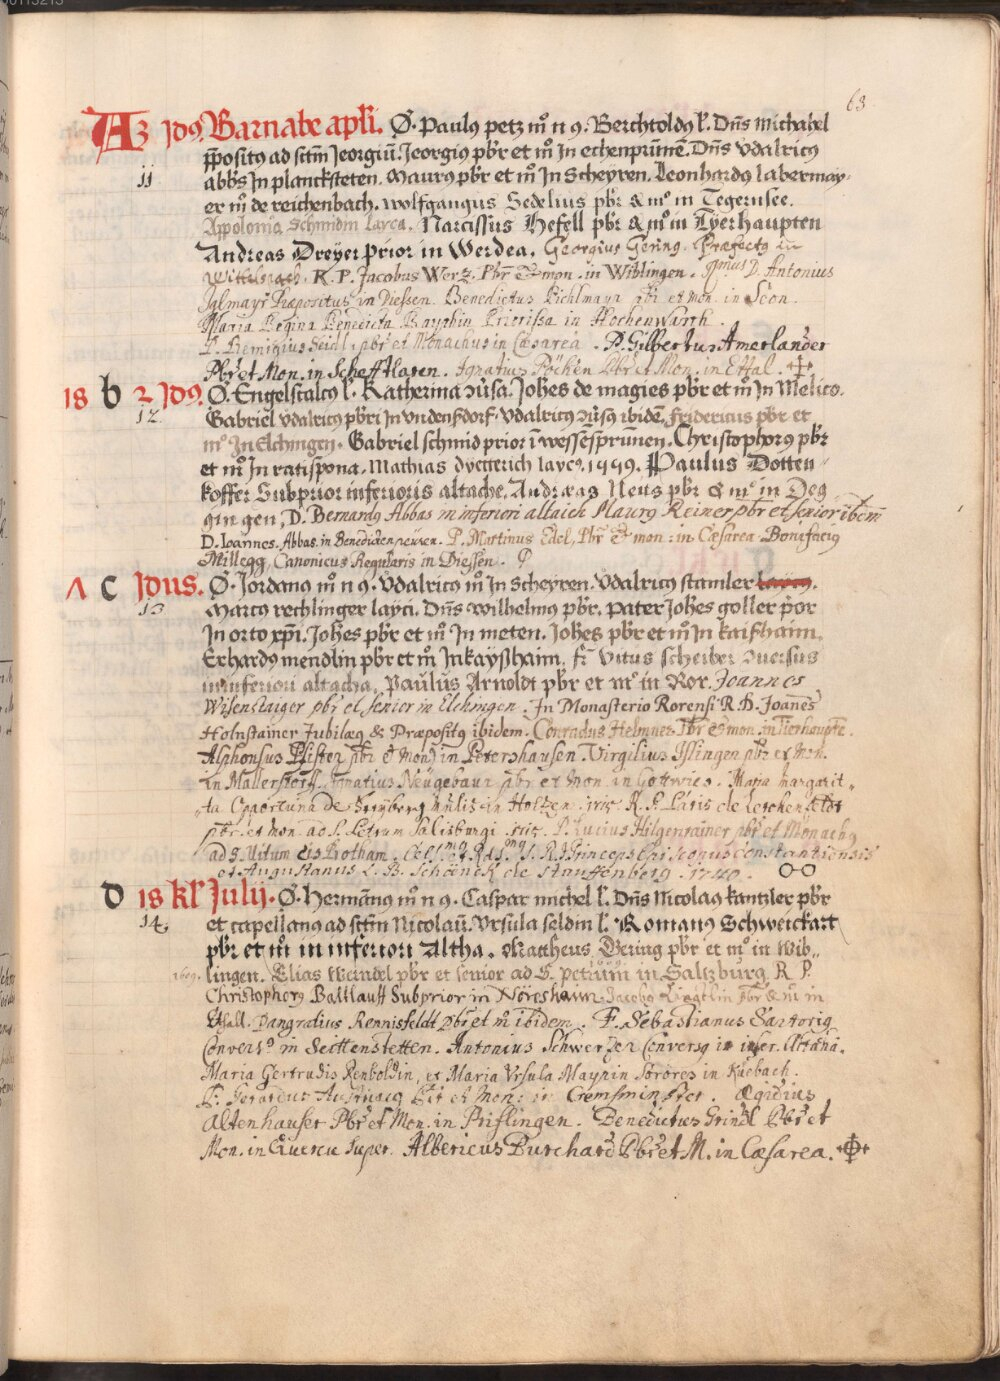 63
A 3 Id9. Barnabe apl̄i. Ø. Paul9 petz m̊ n 9. Berchtold9 l'. Dn̄s Michahel
p̄posit9 ad sctm̄ Jeorgiū. Jeorgi9 pbr̄ et m̊ In echenprūnē. Dn̄s Vdalric9
11 abb̄s In plancksteten. Maur9 pbr̄ et m̊ In Scheyren. Leonhard9 labermay-
er m̊ de reichenbach. Wolfgangus Sedelius pbr̄ & m° in Tegernsee.
Apolonia Schmidin layca. Narcissus Hefell pbr̄ & m° in Tyerhaupten
Andreas Dreyer prior in Werdea. Georgius Gering. Præfect9 in
Wittelspach. R. P. Jacobus Wertz. Pbr̄ & mon. in Wiblingen. D. Antonius
Præpositus in Diessen. Benedictus Pichlmayr pbr et Mon. in Seon.
Maria Regina Benedicta Priorissa in Hochenwarth.
P. Remigius Seidl pbr et Monachus in Cæsarea. P. Gilbertus Amerlander
Pbr̄ et Mon. in Schefftlaren. Ignatius Pöckh Pbr̄ et Mon. in Ettal.
18 b 2 Id9. Ø. Engelstalc9 l'. Katherina rūsa. Joh̄es de magies pbr̄ et m̊ In Melico.
12 Gabriel Vdalric9 pbr̄i In Vndensdorf. Vdalric9 rūs9 ibidē. Fridericus pbr̄ et
m° In Elchingen. Gabriel schmid prior ī wessesprūnen. Christophor9 pbr̄
et m̊ In ratispona. Mathias dyetterich layc9. 1559. Paulus Dotten-
koffer Subprior inferioris altache. Andræas Neus pbr̄ & m° in Deg
gingen, D. Bernard9 Abbas in inferiori altaich Maur9 Reiner pbr̄ et senior ibem
D. Ioannes Abbas in Benedictenpeuren. P. Martinus Edel, Pbr̄ & mon: in Cæsarea. Bonifaci9
Millegg, Canonicus Regularis in Diessen.
A c Idus. Ø. Jordan9 m̊ n 9. Vdalric9 m̊ In Scheyren. Vdalric9 stamler layc9.
13 Marc9 rechlinger layci. Dn̄s wilhelm9 pbr̄. pater Joh̄es goller p̊or
In orto xp̄i. Joh̄es pbr̄ et m̊ In meten. Joh̄es pbr̄ et m̊ In kaisshaim.
Erhard9 mendlin pbr̄ et m̊ In kayssh̄aim. Fr̄ Vitus scheiber
in inferiori altacha. Paulus Arnoldt pbr̄ et m° in Ror. Joannes
Wisenstaiger pbr̄ et senior in Elchingen. In Monasterio Rorensi R. D. Joan̄es
Holnstainer Jubilæ9 & Præposit9 ibidem. Conradus Helmner Pbr̄ & mon. in Tierhaupte.
Alphonsus Pfister pbr̄ & mon9 in Petershausen. Virgilius Islingen pbr̄ et mon.
in Mallerstorff. Ignatius Neügebaur pbr̄ et mon in Gottwico. Maria Margarit-
-ta Opportuna de Freyberg in Holtzen. R. P. Paris de Lerchenfeldt
pbr̄. et mon. ad S. Petrum Salisburgi. P. Lucius Hilgenrainer pbr̄ et Monach9
ad S. Vitum cis Rotham. Cels.mo et Rdsmo S. R. I. Princeps Episcopus Constantiensis
et Augustanus L. B. Schenck de Stauffenberg. 1740.
D 18 kl' Julij. Ø. Hermān9 m̊ n 9. Caspar michel l'. Dn̄s Nicola9 kantzler pbr̄
14. et capellan9 ad sctm̄ Nicolaū. Vrsula seldin l'. Roman9 Schweickart
pbr̄ et m̊ in inferiori Altha. Mattheus Bering pbr̄ et m° in Wib-
lingen. Elias Weindel pbr et senior ad S. petrum in Saltzburg. R P.
Christophor9 Baltlauff Subprior in Nöreshaim. Jacob9 pbr̄ & m̊ in
Ethall. Pangratius Rennisfeldt pbr̄ et m̊ ibidem. F. Sebastianus Sartori9
Convers9 in Seittenstetten. Antonius Schwertzer Convers9 in infer. Altaha.
Maria Gertrudis Renboldin, et Maria Vrsula Mayrin Sorores in Küebach.
P. Gerardus pbr et Mon: in Cremsmünster. Ægidius
Altenhauser Pbr̄ et Mon. in Prifflingen. Benedictus Grindl Pbr̄ et
Mon. in Quercu Super. Albericus Burchard Pbr̄ et M. in Cæsarea.